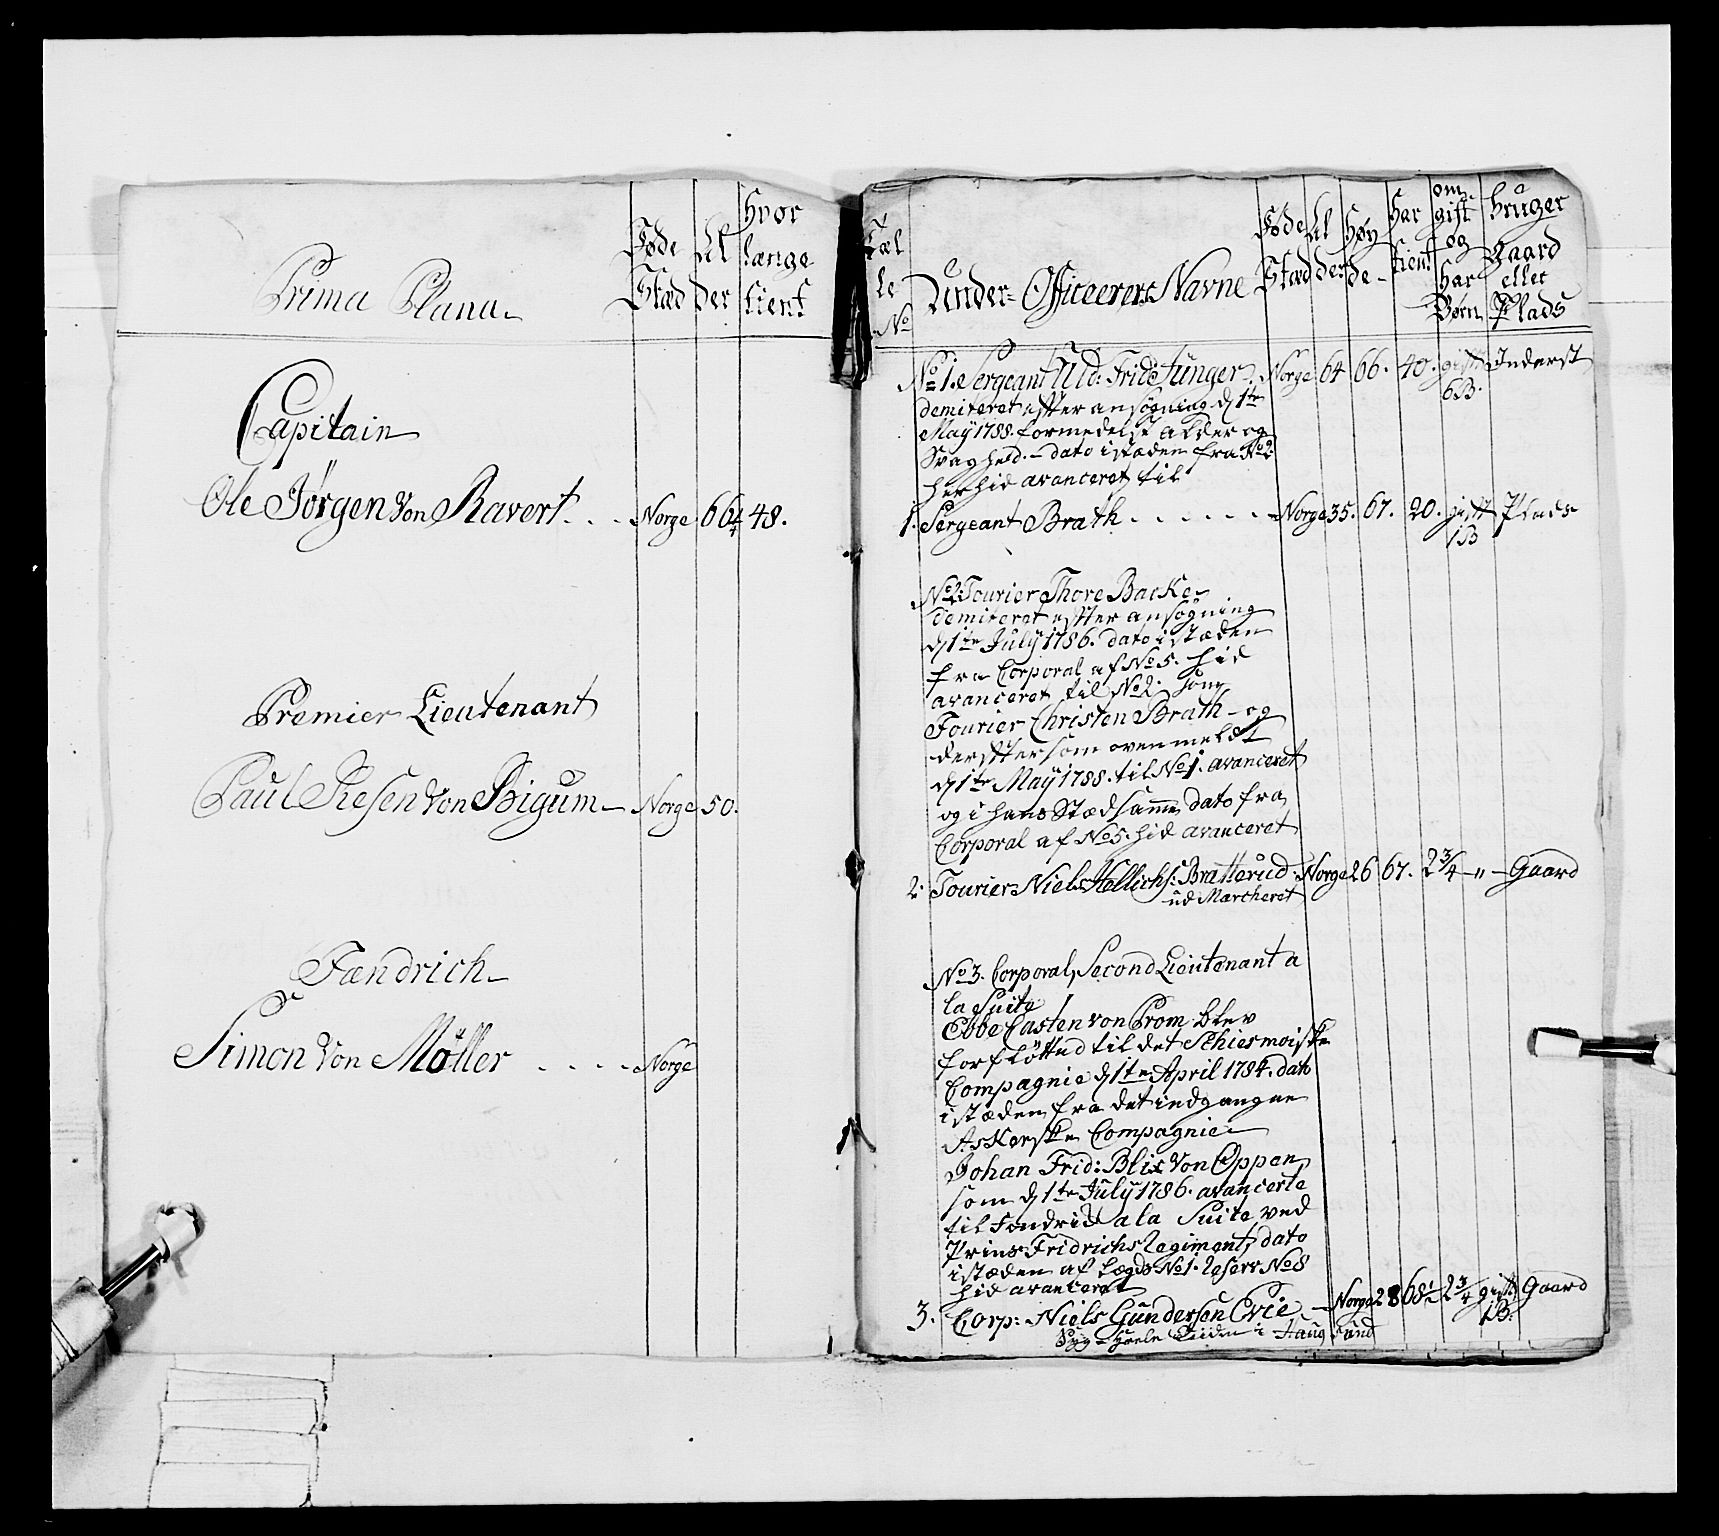 Prima Plana
Føde Stæd
Al der
Hvor længe tient
Capitain
Ole Jørgen Von Ravert . . . Norge 66 1/4 48.
Premier Lieutenant
Paul Resen Von Bigum Norge 50.
Fændrich
Simon Von Møller . . . . Norge
Tæl le No
Under-Officeerers Navne
Føde Stæd
Al der
Høy de
Har tient
om gift og Har Børn
bruger Gaard eller Plads
No 1. Sergeant Uld: Frid: Junger. Norge 64 66. 40. gift Inderst
6B.
demiteret efter ansøgning d 1te
Maÿ 1788. formedelst alder og
Svaghed. - dato istæden fra No 2
her hid avanceret til
1. Sergeant Brath . . . . . . Norge 35. 67. 20. gift Plads
1B
No 2. Fourier Thore Backe
demiteret efter ansøgning
d 1te Julÿ 1786. dato istæden
fra Corporal af No 5. hid
avanceret til No 2. som
Fourier Christen Brath - og
derefter som ovenmeldt
d 1te Maÿ 1788. til No 1. avanceret
og i hans Stæd samme dato fra
Corporal af No 5. hid avanceret
2. Fourier Niels Hellichs: Bratterud Norge 26 67. 2 3/4 - " - Gaard
ud Marcheret
No 3. Corporal, Second Lieutenant a
la Suite
Ebbe Casten von Crom blev
forfløtted til det Schiesmoiske
Compagnie d 1te April 1784. dato
istæden fra det indgangne
Askerske Compagnie
Johan Frid: Blix Von Oppen
som d 1te Julÿ 1786. avancerte
til Fendrich a la Suite ved
Prins Fridrichs Regiment, dato
istæden af Lægds No 1. Reserv No 8
hid avanceret
3. Corp: Niels Gundersen Evie - Norge 28 68 1/2 2 3/4 gift Gaard
1B.
Syg - heele Tiiden i Haugsund